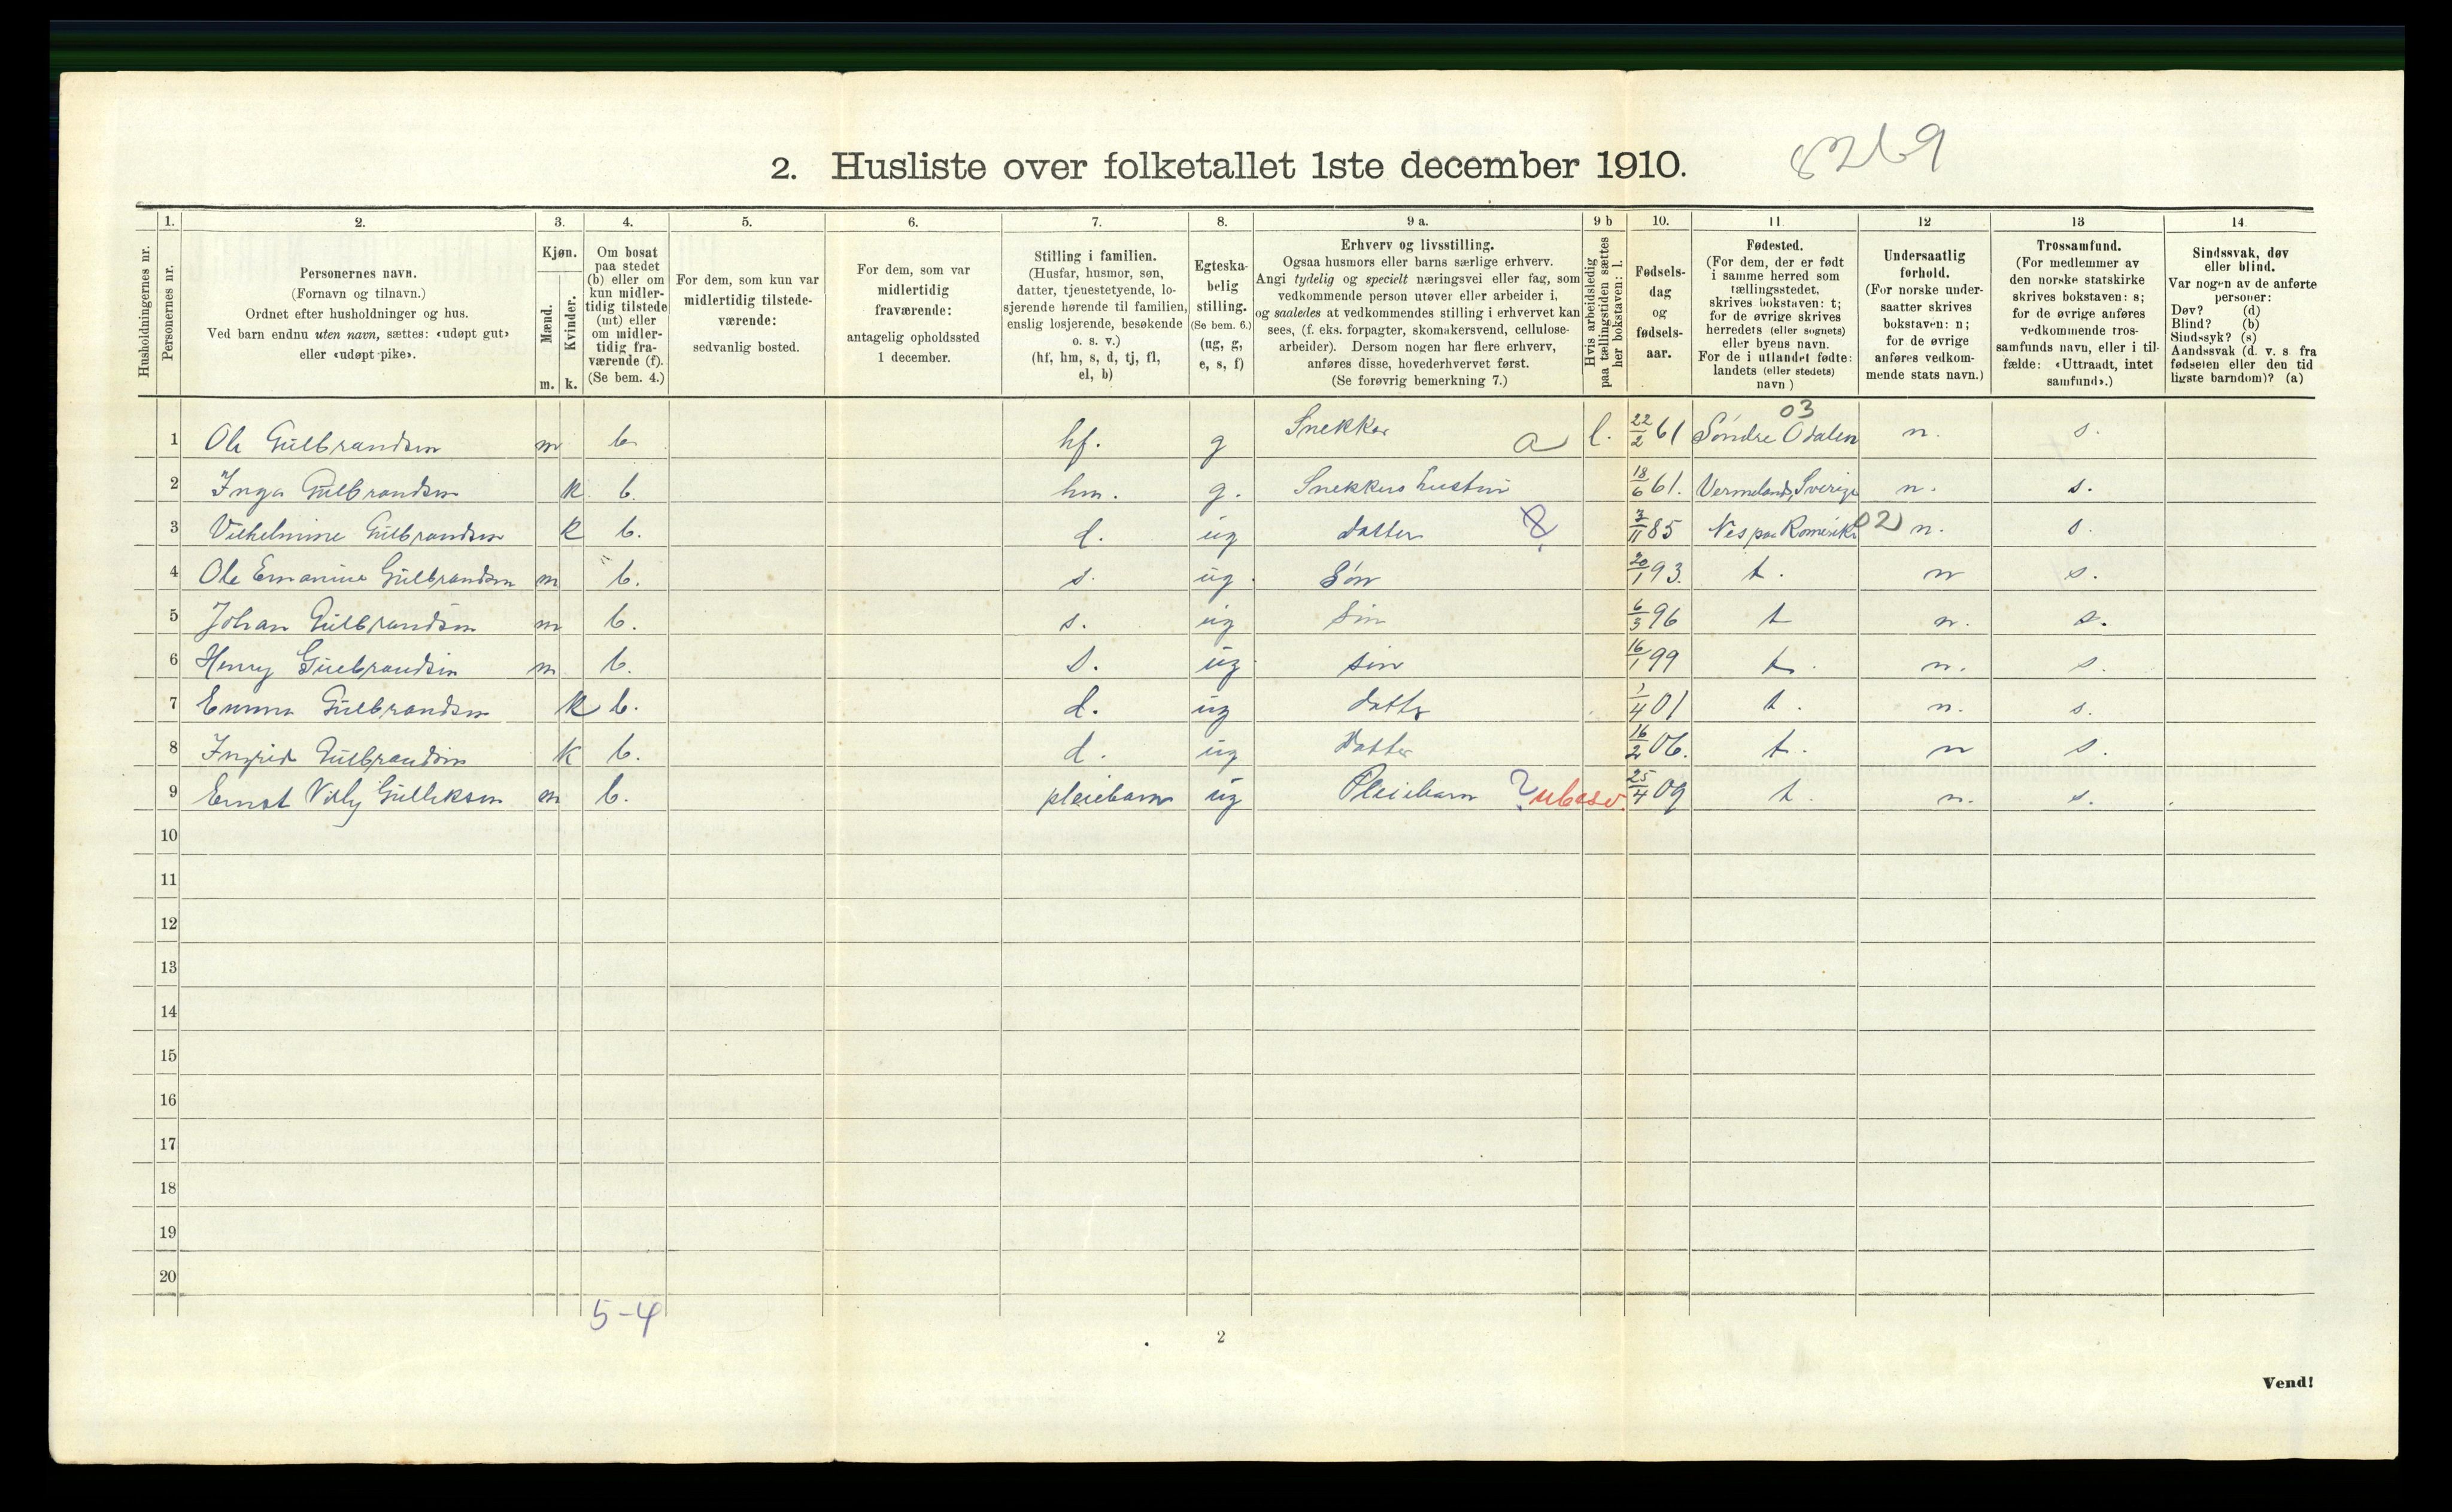 2. Husliste over folketallet 1ste december 1910. 8269
Husholdningernes nr.
1. Personernes nr.
2. Personernes navn.
(Fornavn og tilnavn.)
Ordnet efter husholdninger og hus.
Ved barn endnu uten navn, sættes: «udøpt gut»
eller «udøpt pike».
3. Kjøn.
Mænd. m.
Kvinder. k.
4. Om bosat
paa stedet
(b) eller om
kun midler-
tidig tilstede
(mt) eller
om midler-
tidig fra-
værende (f).
(Se bem. 4.)
5. For dem, som kun var
midlertidig tilstede-
værende:
sedvanlig bosted.
6. For dem, som var
midlertidig
fraværende:
antagelig opholdssted
1 december.
7. Stilling i familien.
(Husfar, husmor, søn,
datter, tjenestetyende, lo-
sjerende hørende til familien,
enslig losjerende, besøkende
o. s. v.)
(hf, hm, s, d, tj, fl,
el, b)
8. Egteska-
belig
stilling.
(Se bem. 6.)
(ug, g,
e, s, f)
9 a. Erhverv og livsstilling.
Ogsaa husmors eller barns særlige erhverv.
Angi tydelig og specielt næringsvei eller fag, som
vedkommende person utøver eller arbeider i,
og saaledes at vedkommendes stilling i erhvervet kan
sees, (f. eks. forpagter, skomakersvend, cellulose-
arbeider). Dersom nogen har flere erhverv,
anføres disse, hovederhvervet først.
(Se forøvrig bemerkning 7.)
9 b Hvis arbeidsledig
paa tællingstiden sættes
her bokstaven: l.
10. Fødsels-
dag
og
fødsels-
aar.
11. Fødested.
(For dem, der er født
i samme herred som
tællingsstedet,
skrives bokstaven: t;
for de øvrige skrives
herredets (eller sognets)
eller byens navn.
For de i utlandet fødte:
landets (eller stedets)
navn)
12 Undersaatlig
forhold.
(For norske under-
saatter skrives
bokstaven: n;
for de øvrige
anføres vedkom-
mende stats navn.)
13 Trossamfund.
(For medlemmer av
den norske statskirke
skrives bokstaven: s;
for de øvrige anføres
vedkommende tros-
samfunds navn, eller i til-
fælde: «Uttraadt, intet
samfund».)
14 Sindssvak, døv
eller blind.
Var nogen av de anførte
personer:
Døv? (d)
Blind? (b)
Sindssyk? (s)
Aandssvak (d. v. s. fra
fødselen eller den tid
ligste barndom)? (a)
03
1 Ole Gulbrandsen m b. hf. g Snekker a l. 22/2 61 Søndre Odalen n. s.
2 Inga Gulbrandsen k. b. hm. g. Snekkers hustru 18/6 61. Vermeland, Sverige n. s.
3 Vilhelmine Gulbrandsen k b. d. ug datter 3/11 85 Nes paa Romerike 02 n. s.
4 Ole Emanuel Gulbrandsen m b. s. ug. Søn 20/1 93. t. n s.
5 Johan Gulbrandsen m b. s. ug Søn 6/3 96 t n. s.
6 Henry Gulbrandsen m b. s. ug. søn 16/1 99 t. n. s.
7 Emma Gulbrandsen k b. d. ug datter 1/4 01 t. n. s.
8 Ingrid Gulbrandsen k b. d. ug datter 16/2 06. t. n s.
9 Ernst Villy Gulliksen m b. pleiebarn ug Pleiebarn ? ubesv. 25/4 09 t. n. s.
10
11
12
13
14
15
16
17
18
19
20
5-4
2
Vend!